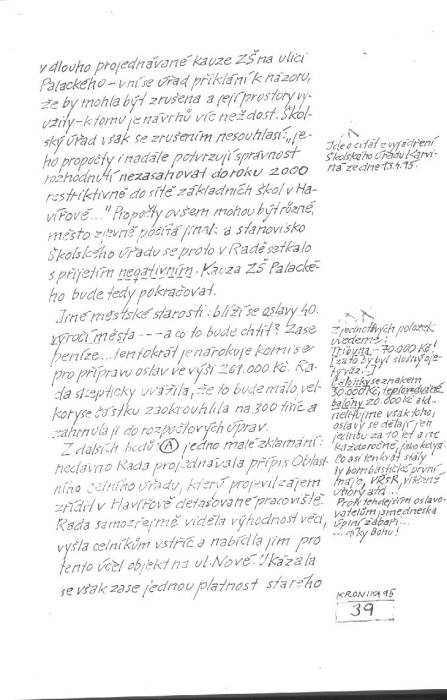 v dlouho projednávané kauze ZŠ na ulici
Palackého – v ní se úřad přiklání k názoru,
že by mohla být zrušena a její prostory vy-
užity – k tomu je návrhů víc než dost. Škol-
ský úřad však se zrušením nesouhlasí: „je-
ho propočty i nadále potvrzují správnost
rozhodnutí nezasahovat do roku 2000
restriktivně do sítě základních škol v Ha-
vířově..." Propočty ovšem mohou být různé,
město zjevně počítá jinak a stanovisko
Školského úřadu se proto v Radě setkalo
s přijetím negativním. Kauza ZŠ Palacké-
ho bude tedy pokračovat.
Jiné městské starosti: blíží se oslavy 40.
výročí města --- a co to bude chtít? Zase
peníze... tentokrát je nárokuje komise
pro přípravu oslav ve výši 269.000 Kč. Ra-
da skepticky uvážila, že to bude málo, vel-
koryse částku zaokrouhlila na 300 tisíc a
zahrnula ji do rozpočtových úprav.
Z dalších bodů: A jedno malé zklamání:
nedávno Rada projednávala přípis Oblast-
ního celního úřadu, který projevil zájem
zřídit v Havířově detašované pracoviště.
Rada samozřejmě viděla výhodnost věci,
vyšla celníkům vstříc a nabídla jim pro
tento účel objekt na ul. Nové. Ukázala
se však zase jednou platnost starého
Jde o citát z vyjádření
Školského úřadu Karvi-
ná ze dne 13.4.95.
Z jednotlivých položek
uvedeme:
Tribuna – 70.000 Kč!
(za to by byl slušný oje-
Balónky se znakem
30.000 Kč, teplovzdušné
balóny 20.000 Kč atd...
nelitujme však toho,
oslavy se dělají jen
jednou za 10 let a ne
každoročně, jako kdysi.
Co asi tenkrát stály
ty bombastické první
máje, VŘSR, vítězné
února atd...
Proti tehdejším oslavo-
vatelům jsme dneska
úplní žabaři...
... díky Bohu!
KRONIKA 95
39